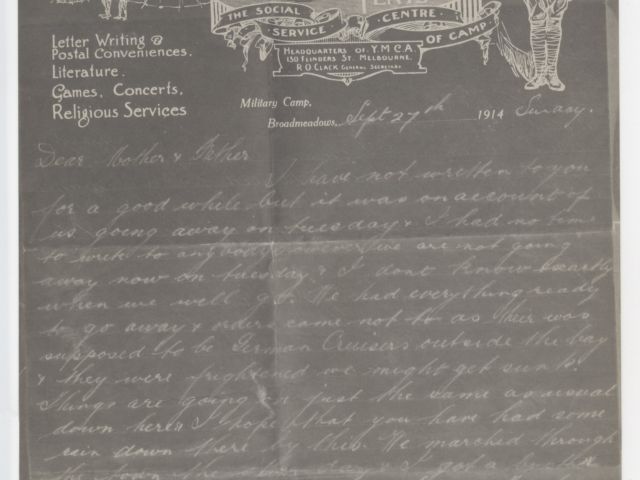 THE SOCIAL SERVICE CENTRE OF CAMP
HEADQUARTERS OF Y.M.C.A.
130 FLINDERS ST. MELBOURNE.
R O CLACK GENERAL SECRETARY
Letter Writing &
Postal Conveniences.
Literature.
Games, Concerts,
Religious Services
Military Camp,
Broadmeadows, Sept 27th 1914 Sunday.
Dear Mother & Father
I have not written to you
for a good while but it was on account of
us going away on tuesday & I had no time
to write to anybody we are not going
away now on tuesday & I dont know exactly
when we will go. We had everything ready
to go away & orders came not to as their was
supposed to be German Cruisers outside the bay
& they were frightened we might get sunk.
Things are going on just the same as usual
down here & I hope that you have had some
rain down there by this. We marched through
the town the other day & I got a